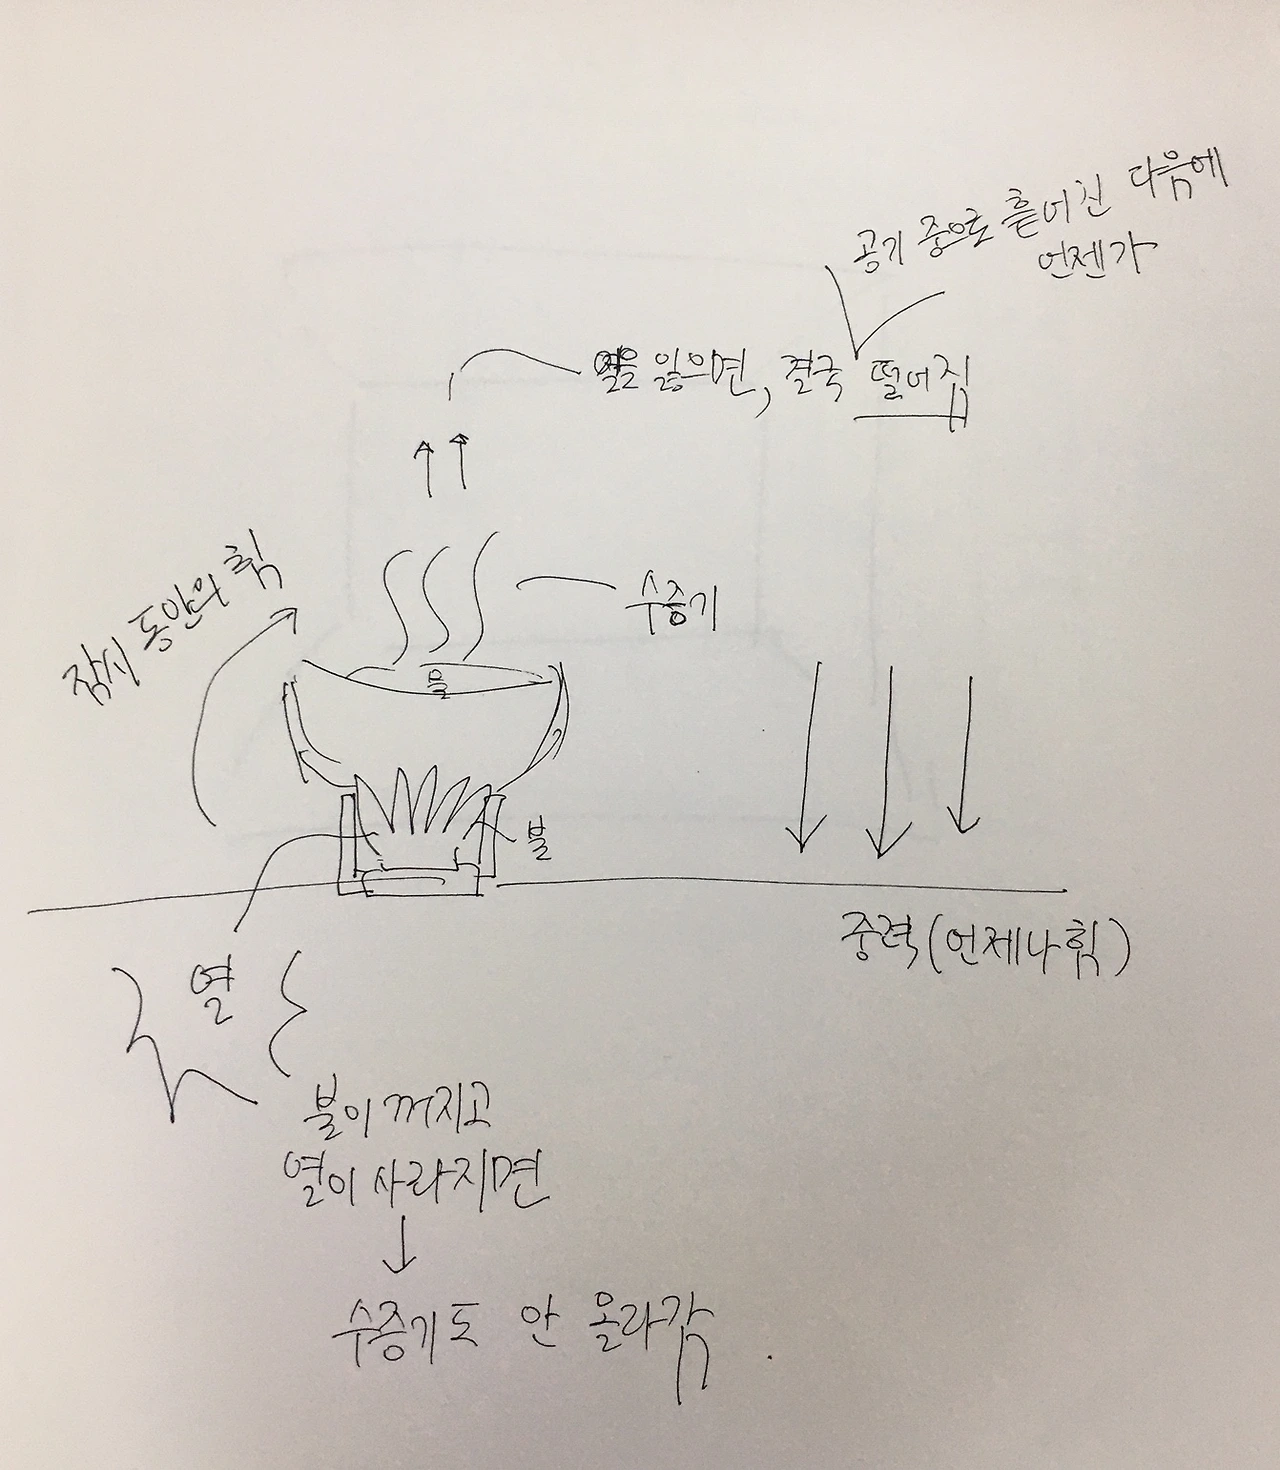 공기 중으로 흩어진 다음에
언젠가
열을 잃으면, 결국 떨어짐
잠시 동안의 힘
수증기
물
불
중력(언제나 힘)
열
불이 꺼지고
열이 사라지면
수증기도 안 올라감